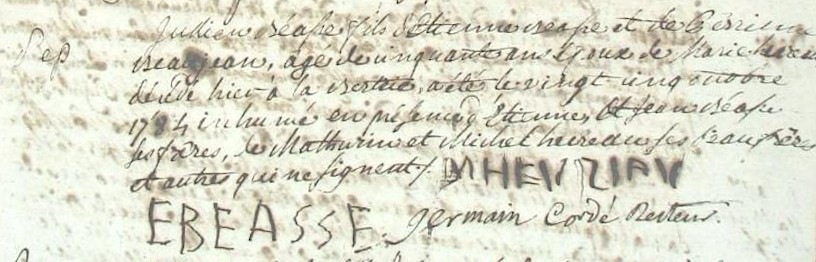 Julien Béasse fils d'Etienne Béasse et de Perrinne
Beaujean, agé de cinquante ans Epoux de Marie
décédé hier à la a été le vingt cinq octobre
1784 inhumé en présence d'Etienne, et Jean Béasse
Rep ses frères, de Mathurin et Michel ses beaufrères
et autres qui ne signent /. MHEURIAU
EBEASSE. germain Cordé Recteur.